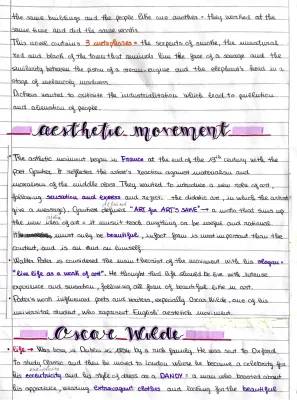 the same buildings and the people like one another • they worked at the
same hours and did the same works.
This novel contains 3 metaphores • the serpents of smoke, the unnatural
red and black of the town that reminds like the face of a savage and the
similarity between the piston of a steam-engine and the elephant's head in a
stage of melancholy madness.
Dickens wanted to criticize the industrialization which lead to pollution
and alienation of people.
aesthetic movement
• The aesthetic movement began in France at the end of the 19th century with the
poet Gautier. It reflects the artist's reaction against materialism and
moralism of the middle class. They wanted to introduce a new role of art,
following sensation and excess and reject the didactic art, in which the artist
give a message). Gautier defined "ART for ART'S SAKE" → a motto that sums up
the new idea of art • it mustn't teach anything, can be unique and rational
It must only be beautiful, infact form is most important than the
content, and is an end in himself.
• Walter Pater is considered the main theorist of the movement with his slogan =
"live life as a work of art". He thought that life should be live with intense
experience and sensation, following all form of beautiful like in art.
• Pater's work influenced poets and writers, especially Oscar Wilde, one of his
universities student, who represent English aesthetic movement.
Oscar Wilde
• life → Was born in Dublin in by a rich family. He was sent to Oxford
to study Classic and then he moves to London where he became a celebrity for
his eccentricity and his style of dress as a DANDY = a man who boasted about
his appearance, wearing extravagant clothes and looking for the beautiful